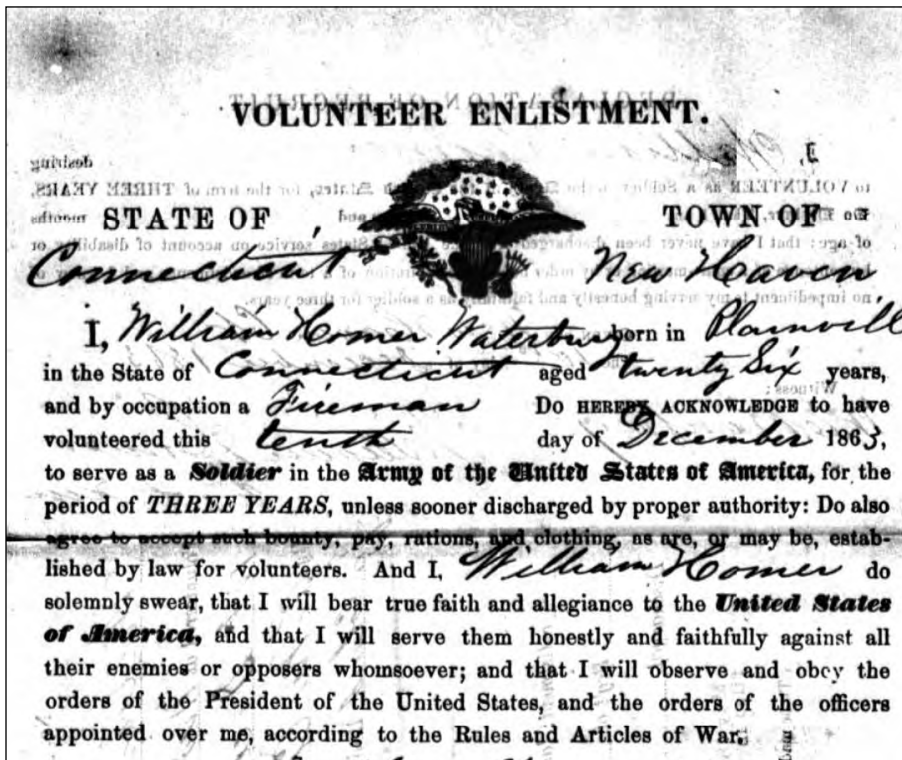 VOLUNTEER ENLISTMENT.
STATE OF TOWN OF
Connecticut New Haven
I, William Homer Waterbury born in Plainvill
in the State of Connecticut aged twenty Six years,
and by occupation a Fireman Do HEREBY ACKNOWLEDGE to have
volunteered this tenth day of December 1863,
to serve as a Soldier in the Army of the United States of America, for the
period of THREE YEARS, unless sooner discharged by proper authority: Do also
agree to accept such bounty, pay, rations, and clothing, as are, or may be, estab-
lished by law for volunteers. And I, William Homer do
solemnly swear, that I will bear true faith and allegiance to the United States
of America, and that I will serve them honestly and faithfully against all
their enemies or opposers whomsoever; and that I will observe and obey the
orders of the President of the United States, and the orders of the officers
appointed over me, according to the Rules and Articles of War.